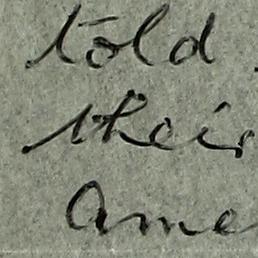 told
their
ame